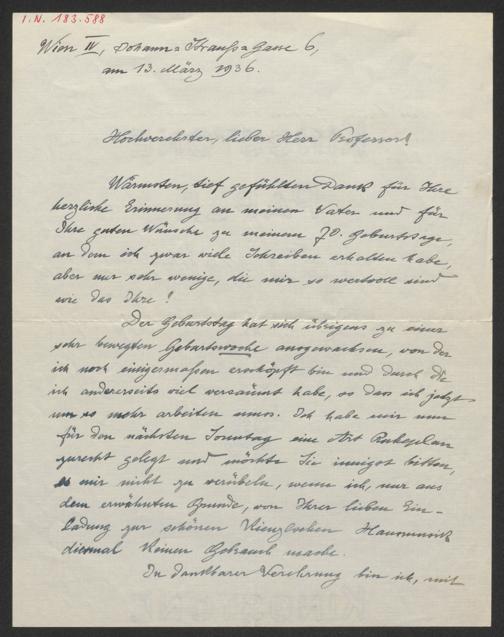 I.N. 183.588
Wien IV, Johann=Strauß=Gasse 6,
am 13. März 1936.
Hochverehrter, lieber Herr Professor!
Wärmsten, tief gefühlten Dank für Ihre
herzliche Erinnerung an meinen Vater und für
Ihre guten Wünsche zu meinem 70. Geburtstage,
an dem ich zwar viele Schreiben erhalten habe,
aber nur sehr wenige, die mir so wertvoll sind
wie das Ihre!
Der Geburtstag hat sich übrigens zu einer
sehr bewegten Geburtswoche ausgewachsen, von der
ich noch einigermaßen erschöpft bin und durch die
ich andererseits viel versäumt habe, so dass ich jetzt
um so mehr arbeiten muss. Ich habe mir nun
für den nächsten Sonntag eine Art
zurecht gelegt und möchte Sie innigst bitten,
es mir nicht zu verübeln, wenn ich, nur aus
dem erwähnten Grunde, von Ihrer lieben Ein-
ladung zur schönen Hausmusik
diesmal keinen Gebrauch mache.
In dankbarer Verehrung bin ich, mit